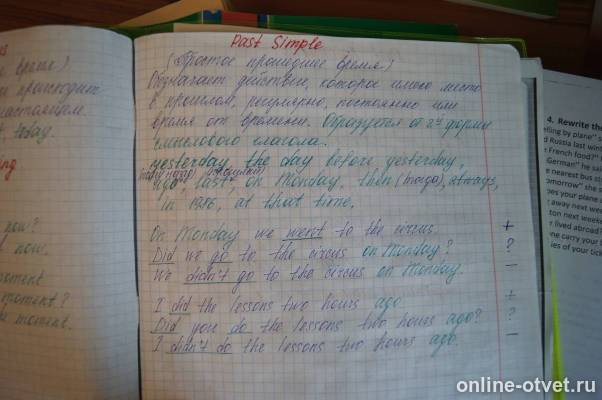 Past Simple
(Простое прошедшее время)
Обозначает действие, которое имело место
в прошлом, регулярно, постоянно или
время от времени. Образуется от 2ой формы
смыслового глагола.
yesterday, the day before yesterday,
ago, last, on Monday, then (тогда), always,
in 1986, at that time.
On Monday we went to the circus. +
Did we go to the circus on Monday? ?
We didn't go to the circus on Monday. –
I did the lessons two hours ago +
Did you do the lessons two hours ago? ?
I didn't do the lessons two hours ago. –
время)
происходит
настоящим
today.
now?
now.
moment
moment?
moment.
4. Rewrite the
elling by plane" s
d Russia last win
French food?"
German" he sai
e nearest bus st
omorrow" she s
oes your plane
away next week
ton next weeke
r lived abroad
one carry your
ies of your tick
online-otvet.ru